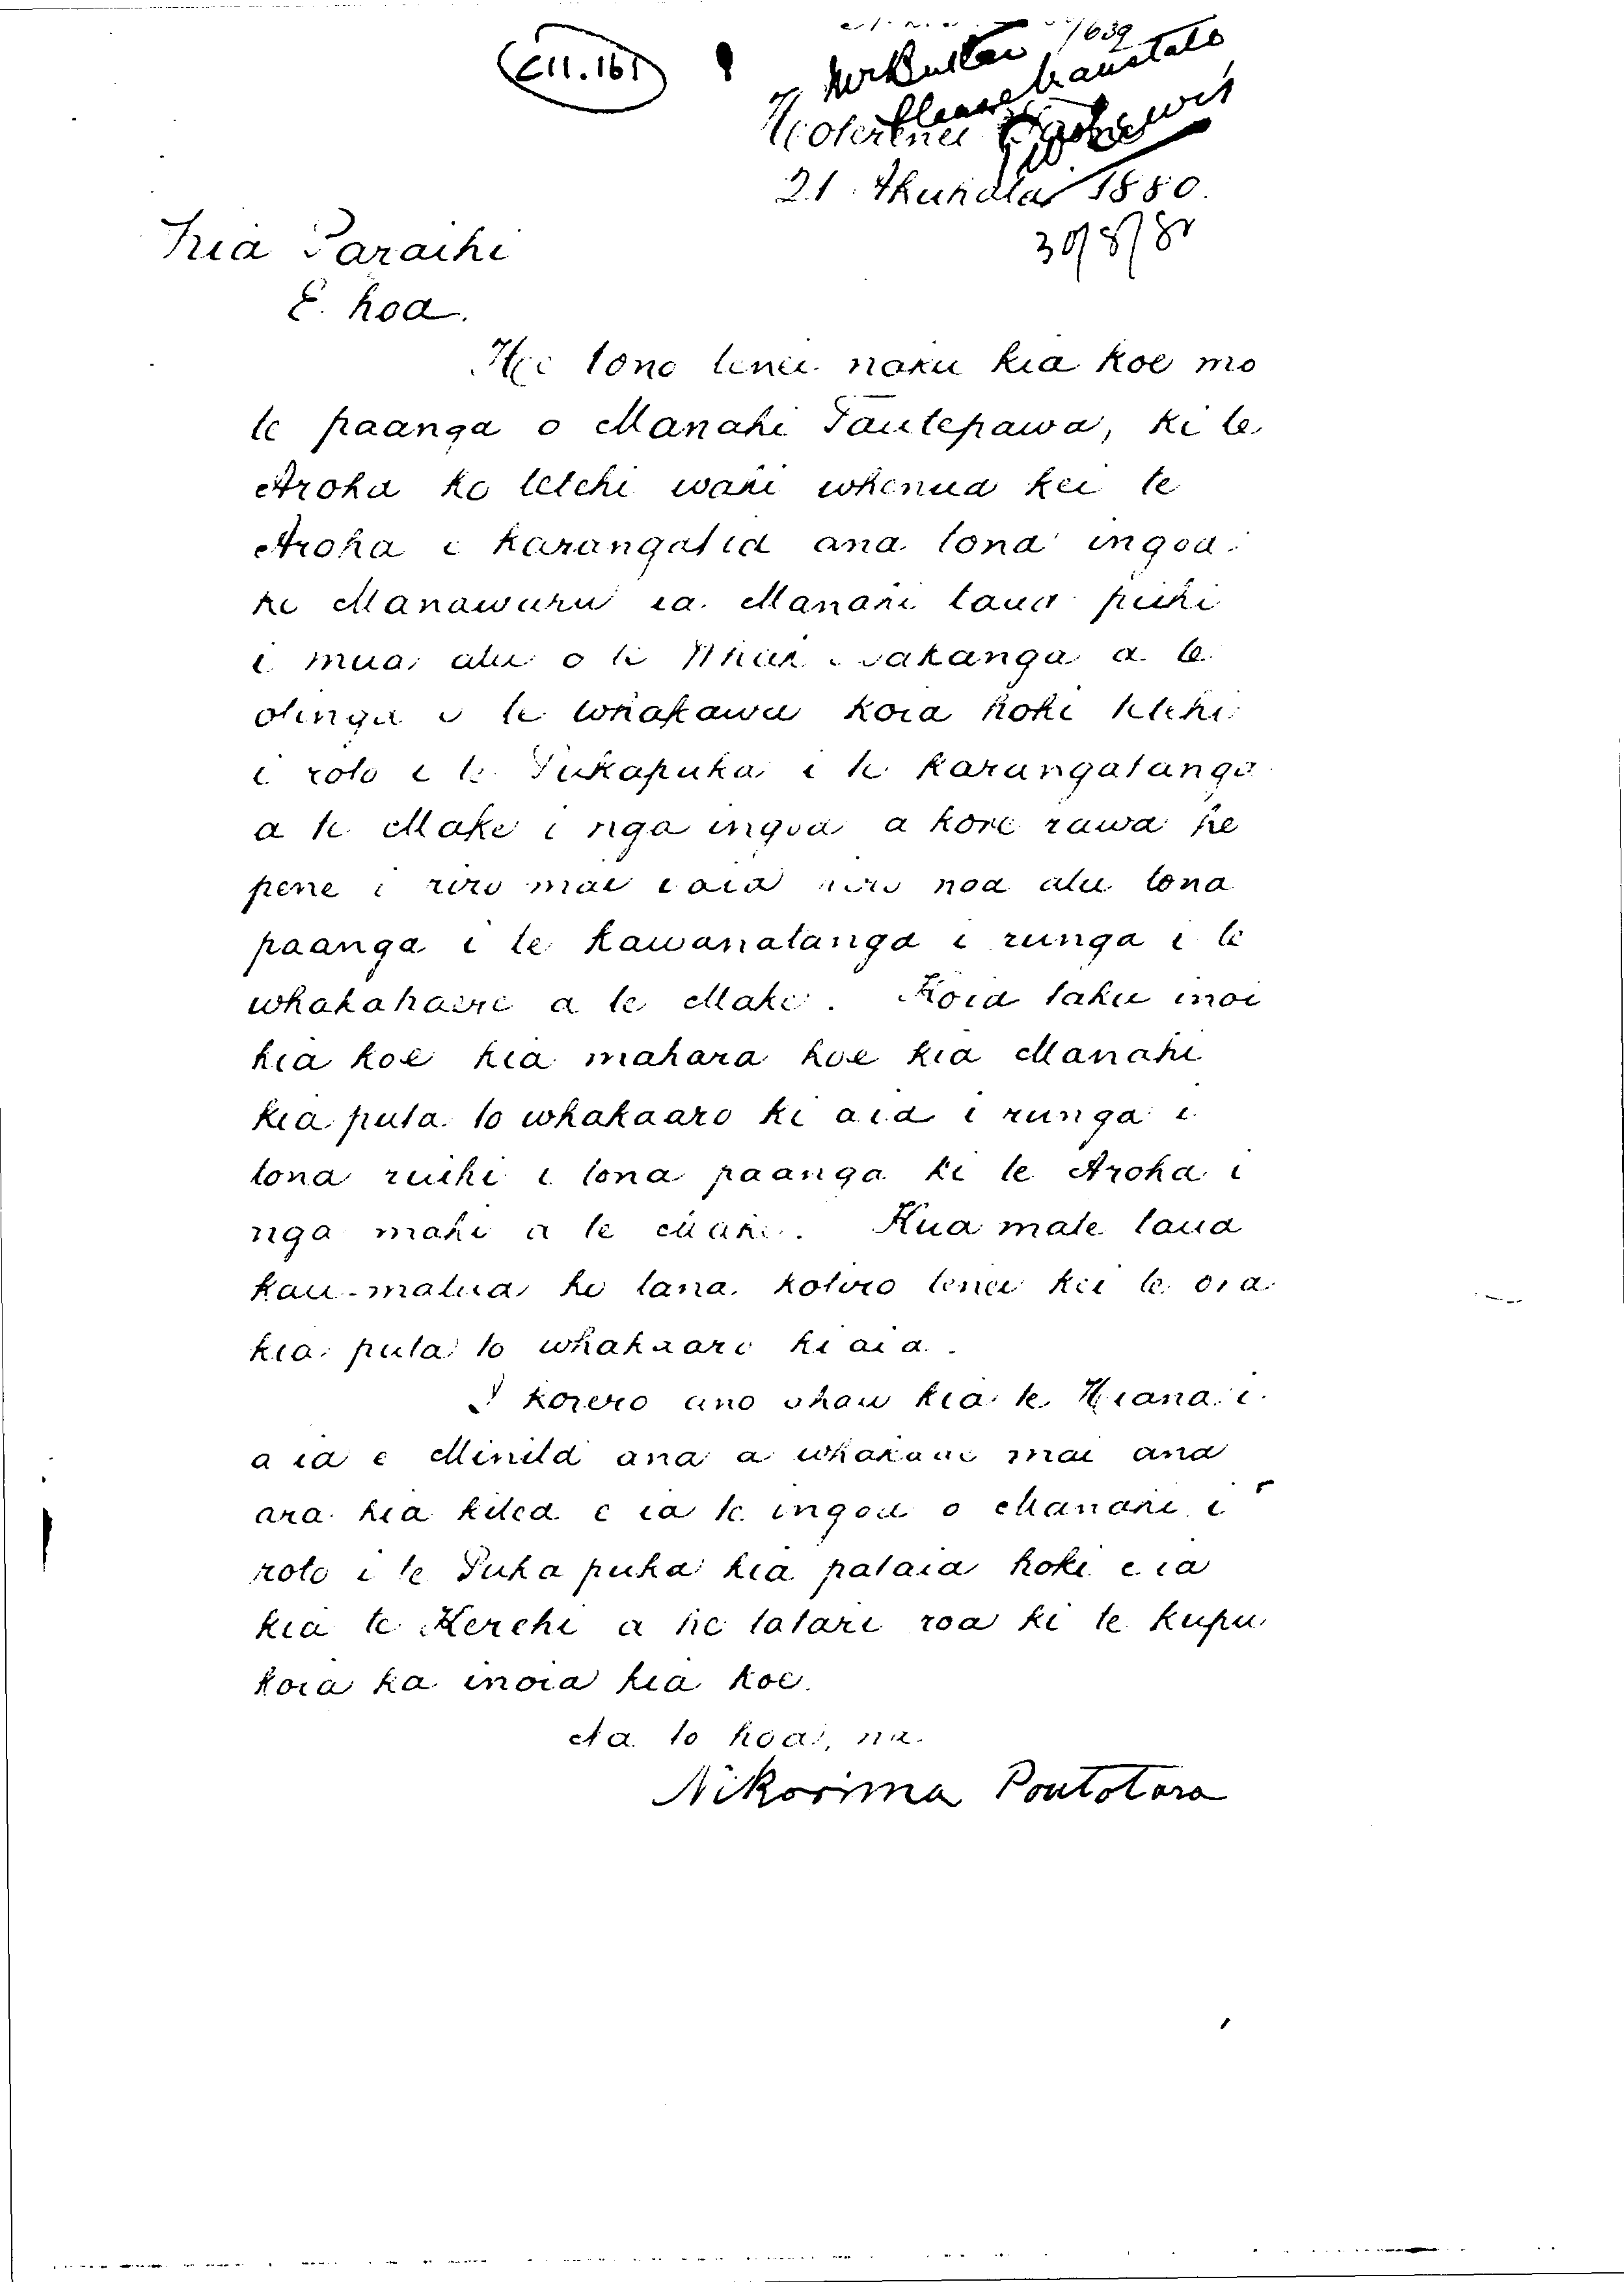 C11.161
1639
Mr Butler
Please translate
21 Akuhata 1880.
30/8/80
Kia Paraihi
E. hoa.
He tono tenei naku kia koe mo
te paanga o Manahi Tautepawa, ki te
Aroha ko tetehi wahi whenua kei te
Aroha i karangatia ana tona ingoa
ko Manawaru ia Manahi taua ruihi
i mua atu o te Whakawakanga a te
otinga o te whakawa koia hoki tetehi
i roto i te Pukapuka i te karangatanga
a te Make i nga ingoa a kore rawa he
pene i riro mai i aia riro noa atu tona
paanga i te Kawanatanga i runga i te
whakahaere a te Make. Koia taku inoi
kia koe kia mahara koe kia Manahi
kia puta to whakaaro ki aia i runga i
tona ruihi i tona paanga ki te Aroha i
nga mahi a te Make. Kua mate taua
kau-matua ko tana kotiro tenei kei te ora
kia puta to whakaaro ki aia.
I korero ano ahau kia te Hiana i
aia e Minita ana a whakaae mai ana
ara kia kitea e ia te ingoa o Manahi i
roto i te Puka puka kia pataia hoki e ia
kia te Kerehi a he tatari roa ki te kupu
koia ka inoia kia koe.
Na to hoa, na
Nikorima Poutotara